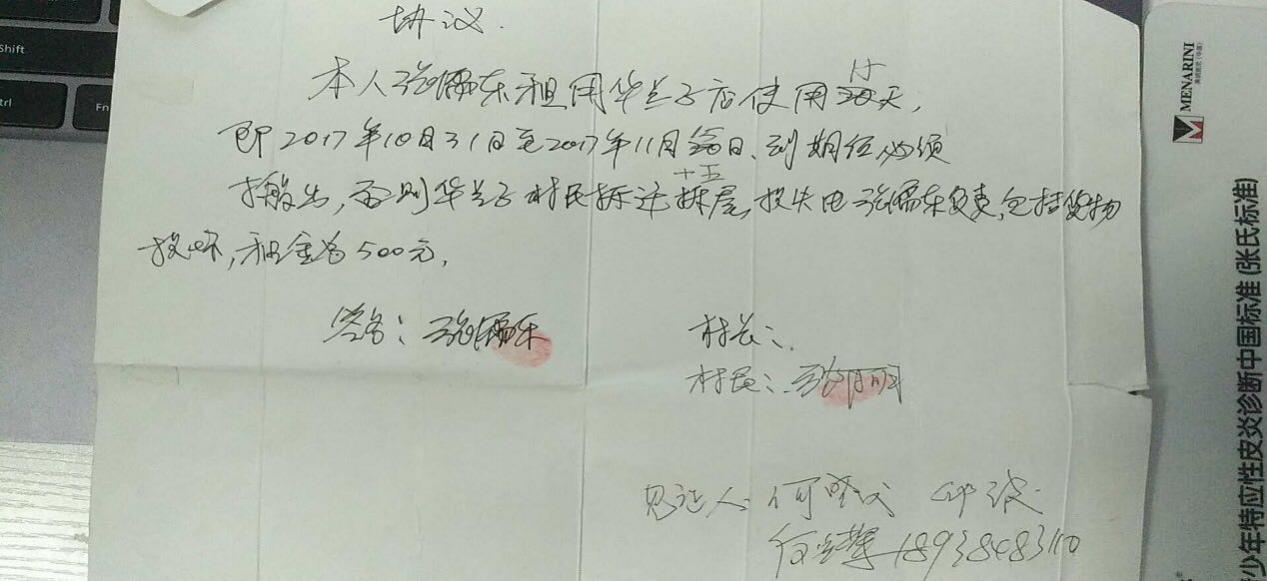 协议.
本人张儒东租用华兰子店使用15天,
即2017年10月31日至2017年11月十五日、到期后必须
搬出,否则华兰子村民拆迁拆屋,损失由张儒东负责,包括货物
损坏,租金为500元,
签名:张儒东
村长:.
村民:
见证人:何
18938483110
MENARINI
少年特应性皮炎诊断中国标准(张氏标准)
Shift
trl
Fn